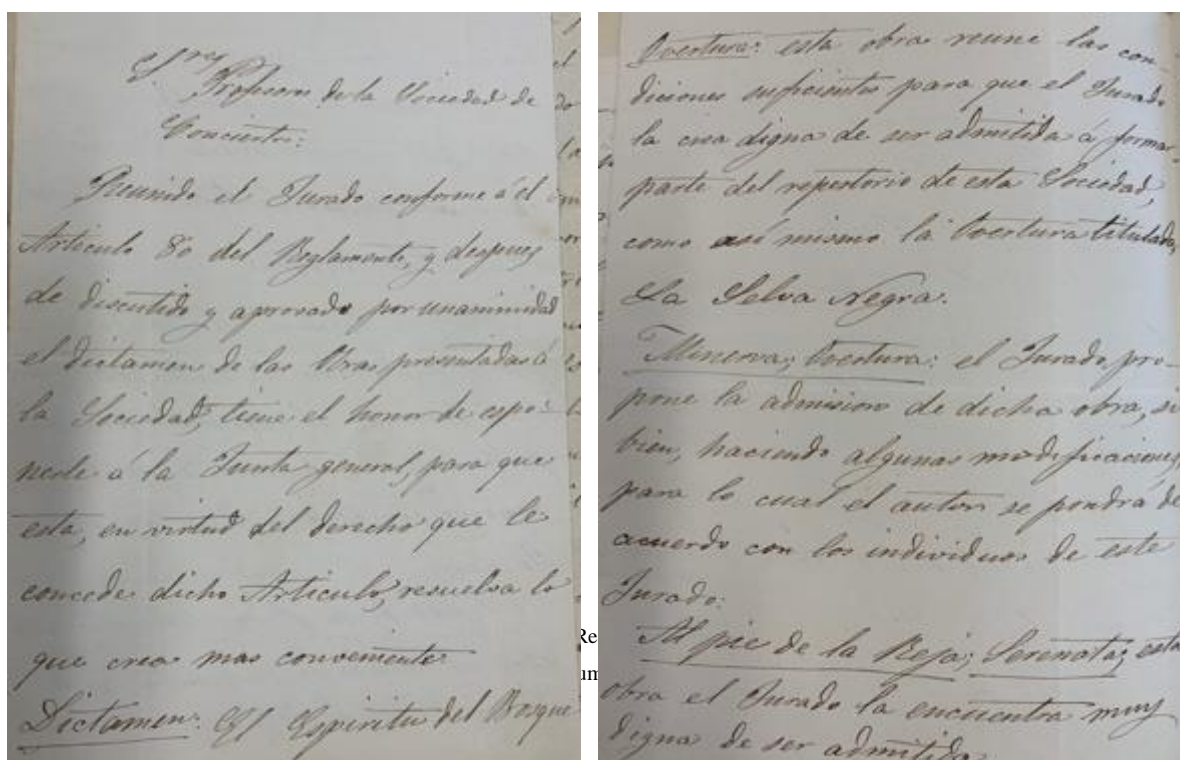 Sres
Profesores de la Sociedad de
Conciertos:
Reunido el Jurado conforme á el
Articulo 8º del Reglamento, y despues
de discutido y aprovado por unanimidad
el dictamen de las Obras presentadas á
la Sociedad, tiene el honor de espo-
nerle á la Junta general, para que
esta, en virtud del derecho que le
concede dicho Articulo, resuelva lo
que crea mas conveniente.
Dictamen: El Espiritu del Bosque
Overtura: esta obra reune las con-
diciones suficientes para que el Jurado
la crea digna de ser admitida á formar
parte del repertorio de esta Sociedad,
como asi mismo la Overtura titulada,
La Selva Negra.
Minerva; Overtura: el Jurado pro-
pone la admision de dicha obra, si
bien, haciendo algunas modificaciones,
para lo cual el autor se pondrá de
acuerdo con los individuos de este
Jurado:
Al pie de la Reja; Serenata; esta
obra el Jurado la encuentra muy
digna de ser admitida
Re
um